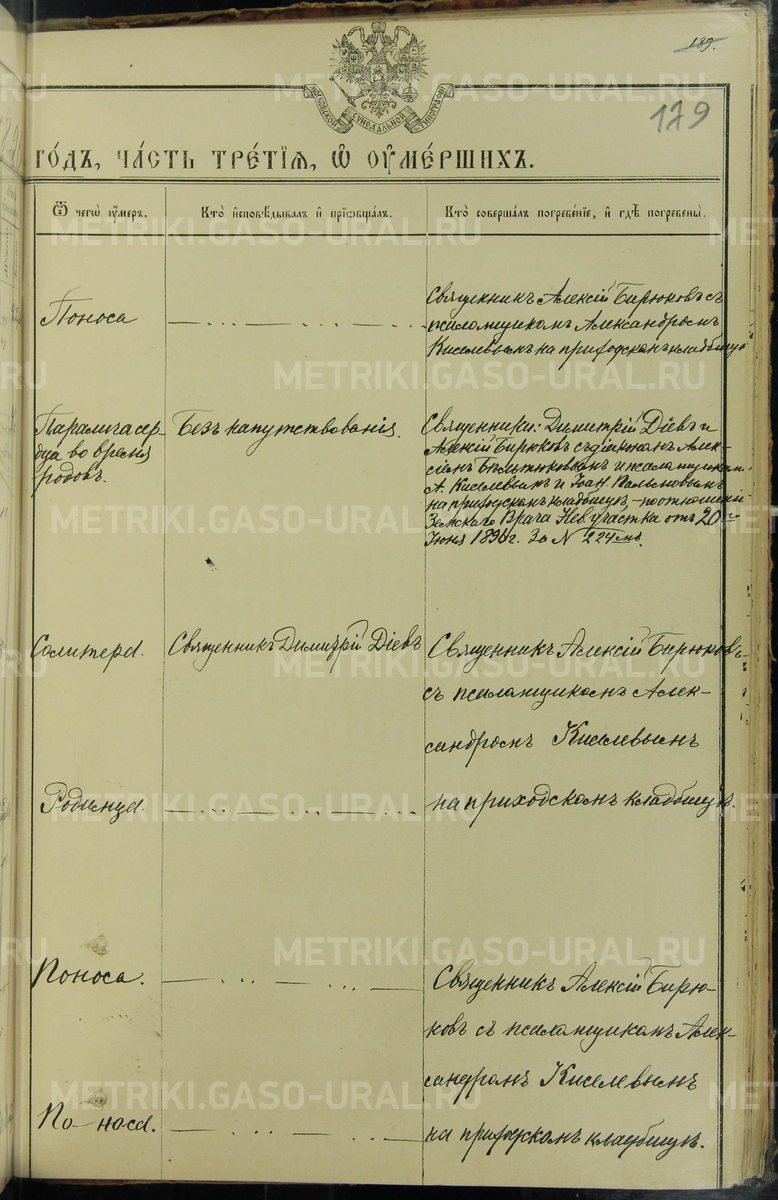 189.
179
МОСКОВСКОЙ СѴНОДАЛЬНОЙ ТИПОГРАФІИ
ГО́ДЪ, ЧА́СТЬ ТРЕ́ТІЯ, Ѽ ОУ҆МЕ́РШИХЪ.
Ѿ чегѡ̀ оу҆́меръ.
Кто̀ и҆сповѣ́дывалъ и҆ прїѡбща́лъ.
Кто̀ соверша́лъ погребе́нїе, и҆ гдѣ̀ погребены̀.
Поноса
Священникъ Алексій Бирюковъ съ
псаломщикомъ Александромъ
Киселевымъ на приходскомъ кладбищѣ
Паралича сер-
дца во время
родовъ.
Безъ напутствованія.
Священники: Димитрій Діевъ и
Алексій Бирюковъ съ діакономъ Алек-
сіемъ и псаломщиками
А. Киселевымъ и Іоан.
на приходскомъ кладбищѣ, - по отношенію
Земскаго Врача Нев. участка отъ 20го
Іюня 1896 г. За N 224мъ.
Солитера.
Священникъ Димитрій Діевъ
Священникъ Алексій Бирюковъ
съ псаломщикомъ Алек-
сандромъ Киселевымъ
Родимца.
на приходскомъ кладбищѣ.
Поноса.
Священникъ Алексій Бирю-
ковъ съ псаломщикомъ Алек-
сандромъ Киселевымъ
Поноса.
на приходскомъ кладбищѣ.
METRIKI.GASO-URAL.RU